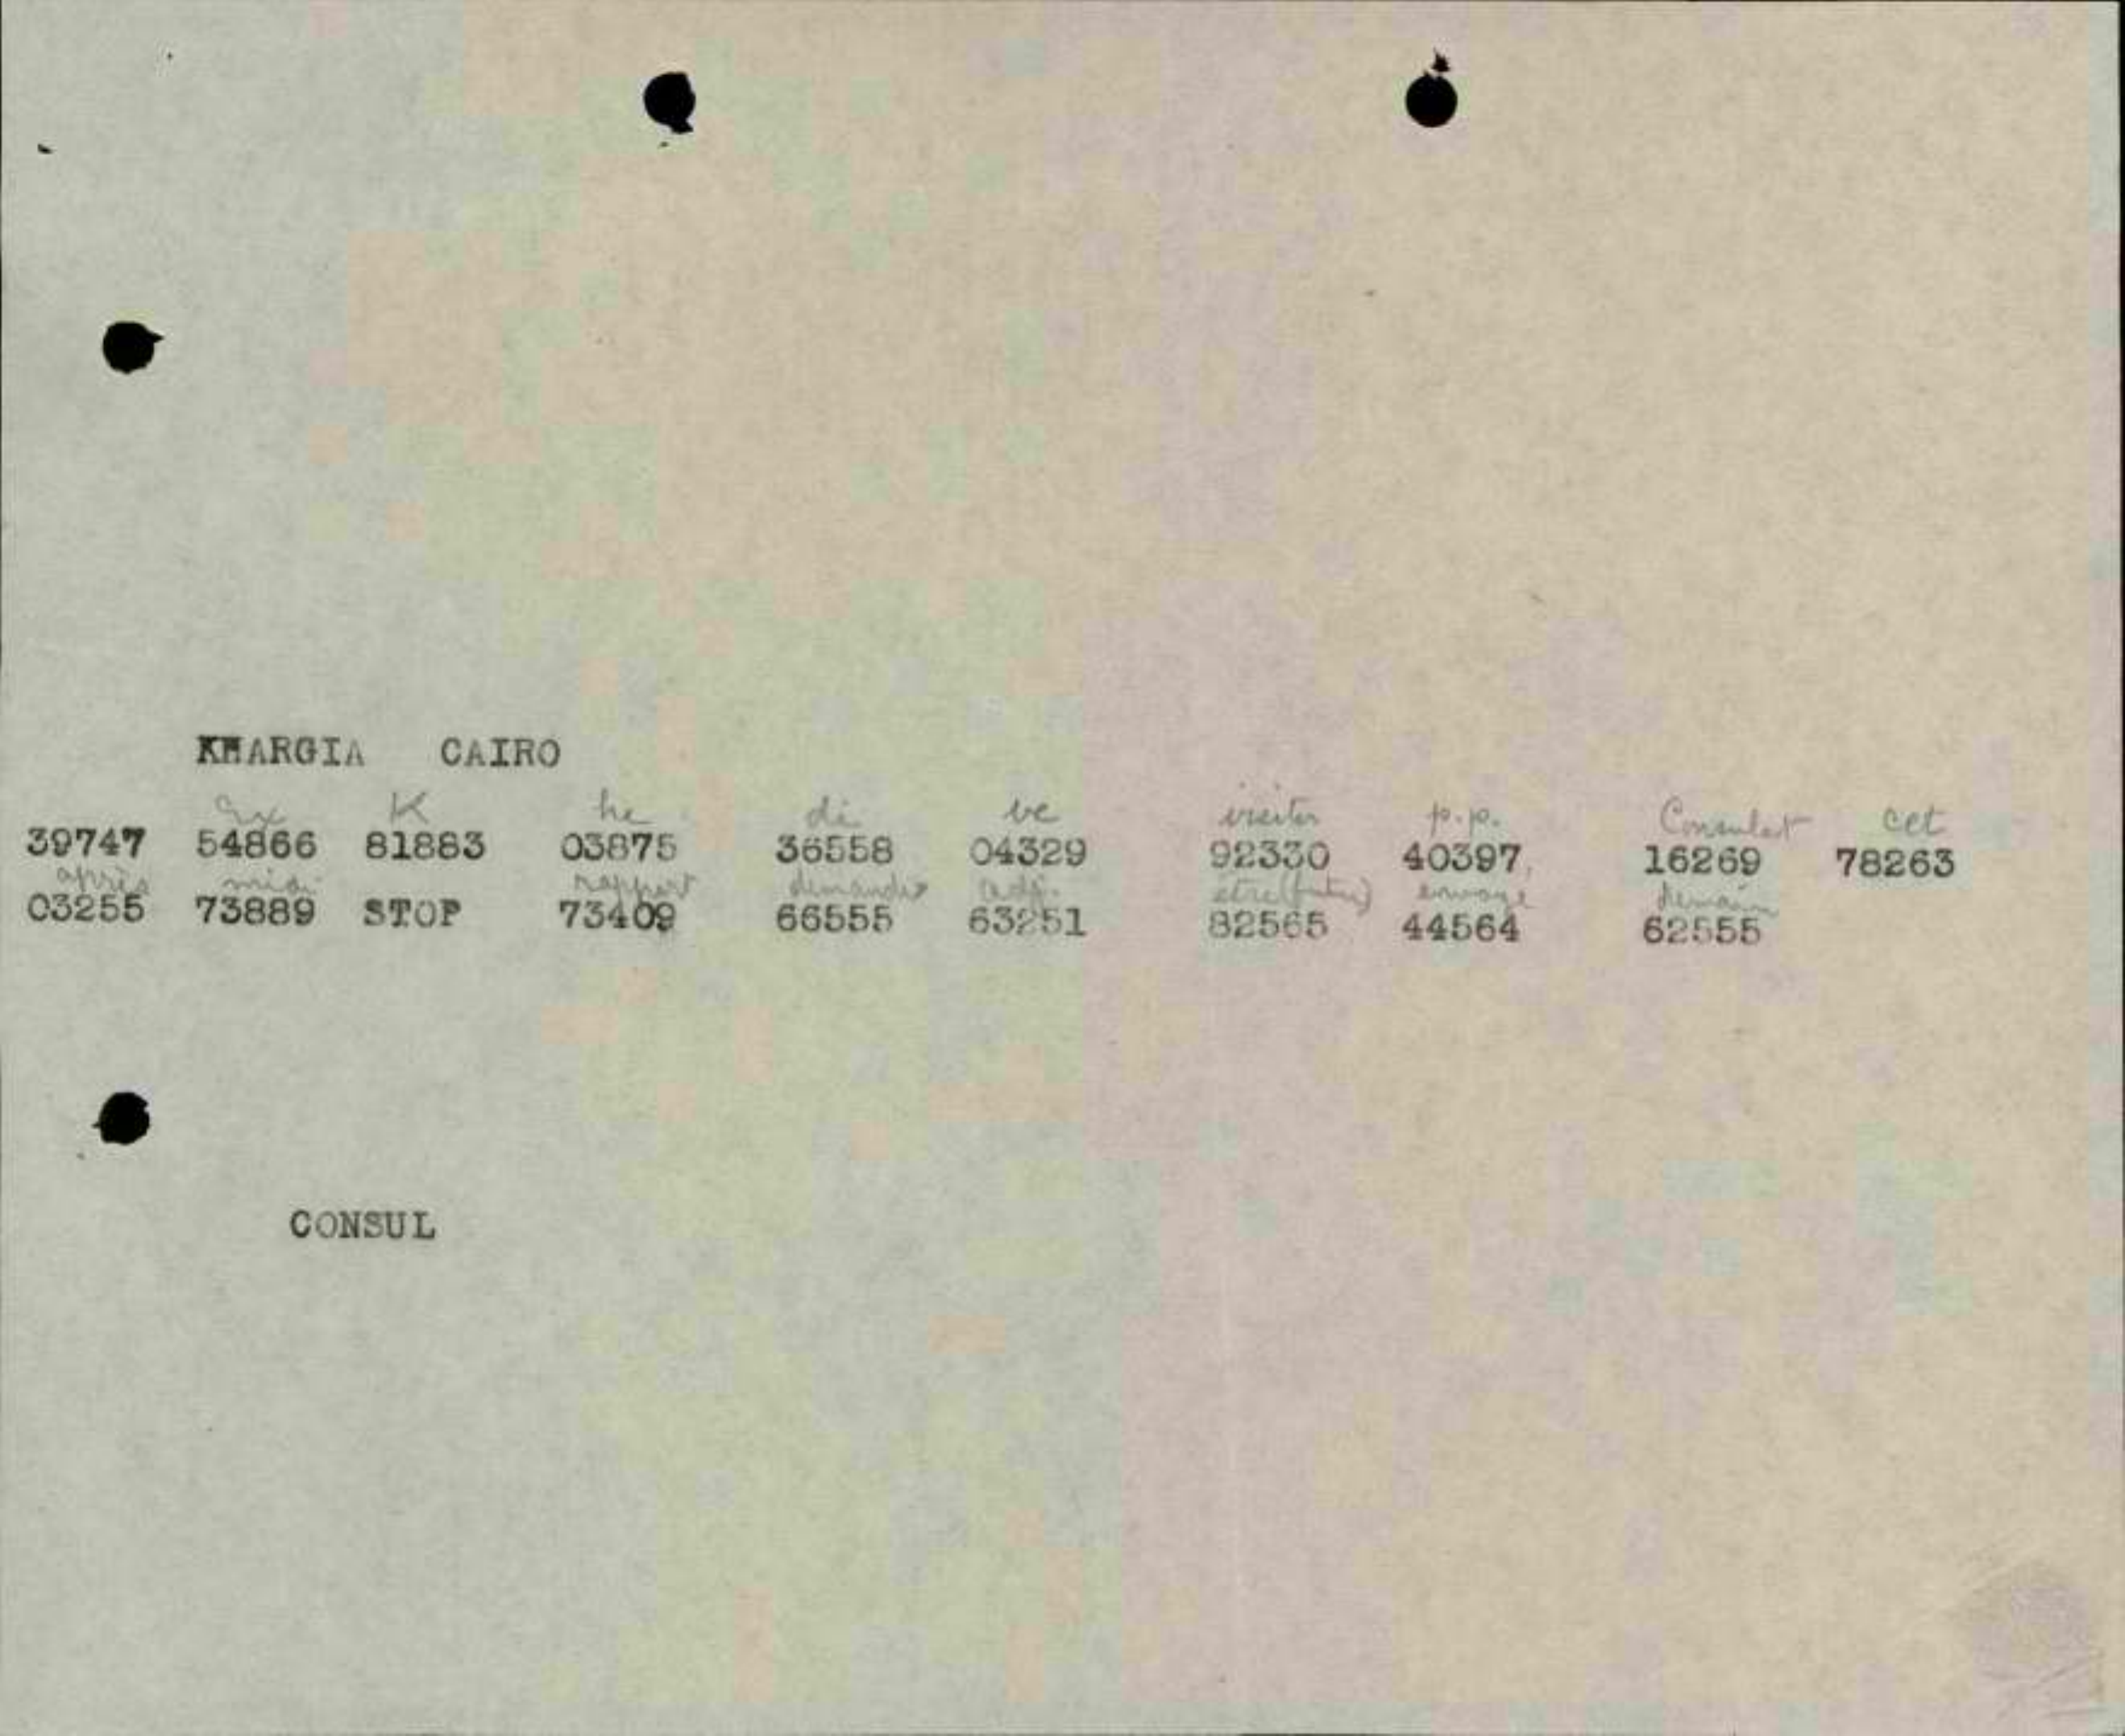 KHARGIA CAIRO
Ex K he di ve visiter p.p. Consulat cet
39747 54866 81883 03875 36558 04329 92330 40397, 16269 78263
après midi rapport demandé adj. etre (futur) envoyé demain
03255 73889 STOP 73409 66555 63251 82565 44564 62555
CONSUL